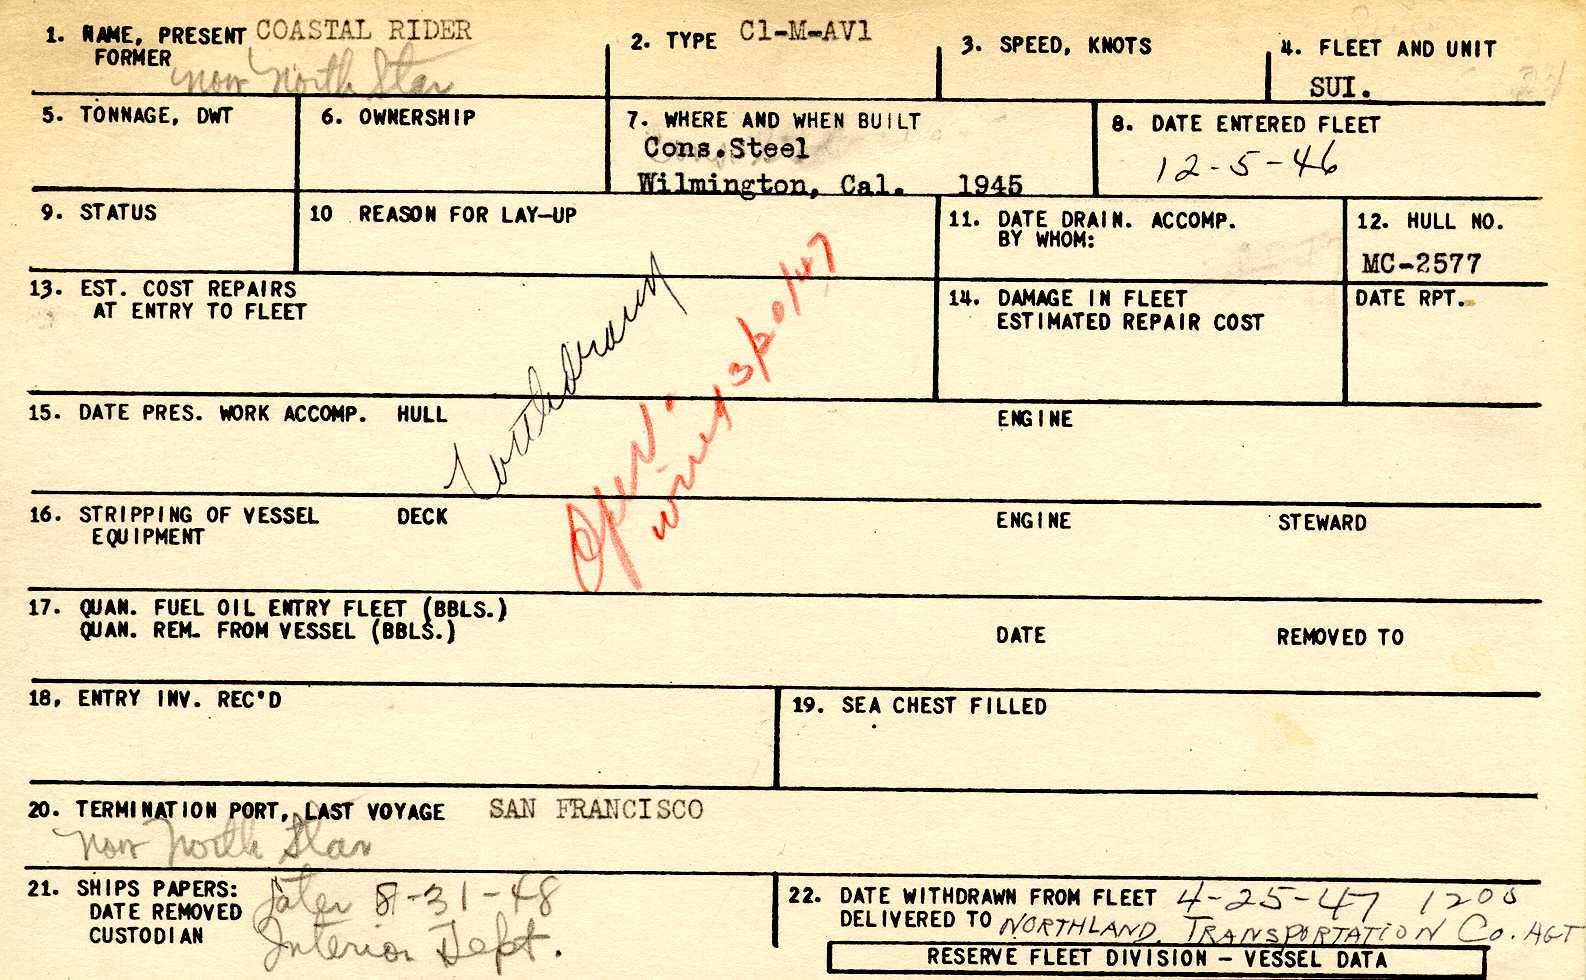 1. NAME, PRESENT COASTAL RIDER
FORMER
now North Star
2. TYPE C1-M-AV1
3. SPEED, KNOTS
4. FLEET AND UNIT
SUI.
5. TONNAGE, DWT
6. OWNERSHIP
7. WHERE AND WHEN BUILT
Cons.Steel
Wilmington, Cal. 1945
8. DATE ENTERED FLEET
12-5-46
9. STATUS
10 REASON FOR LAY-UP
11. DATE DRAIN. ACCOMP.
BY WHOM:
12. HULL NO.
MC-2577
13. EST. COST REPAIRS
AT ENTRY TO FLEET
14. DAMAGE IN FLEET
ESTIMATED REPAIR COST
DATE RPT.
Withdrawn
Open.
wired 3/20/47
15. DATE PRES. WORK ACCOMP. HULL
ENGINE
16. STRIPPING OF VESSEL DECK
EQUIPMENT
ENGINE
STEWARD
17. QUAN. FUEL OIL ENTRY FLEET (BBLS.)
QUAN. REM. FROM VESSEL (BBLS.)
DATE
REMOVED TO
18, ENTRY INV. REC'D
19. SEA CHEST FILLED
20. TERMINATION PORT, LAST VOYAGE SAN FRANCISCO
now North Star
21. SHIPS PAPERS:
DATE REMOVED
CUSTODIAN
later 8-31-48
Interior Dept.
22. DATE WITHDRAWN FROM FLEET 4-25-47 1200
DELIVERED TO NORTHLAND TRANSPORTATION CO. AGT
RESERVE FLEET DIVISION - VESSEL DATA